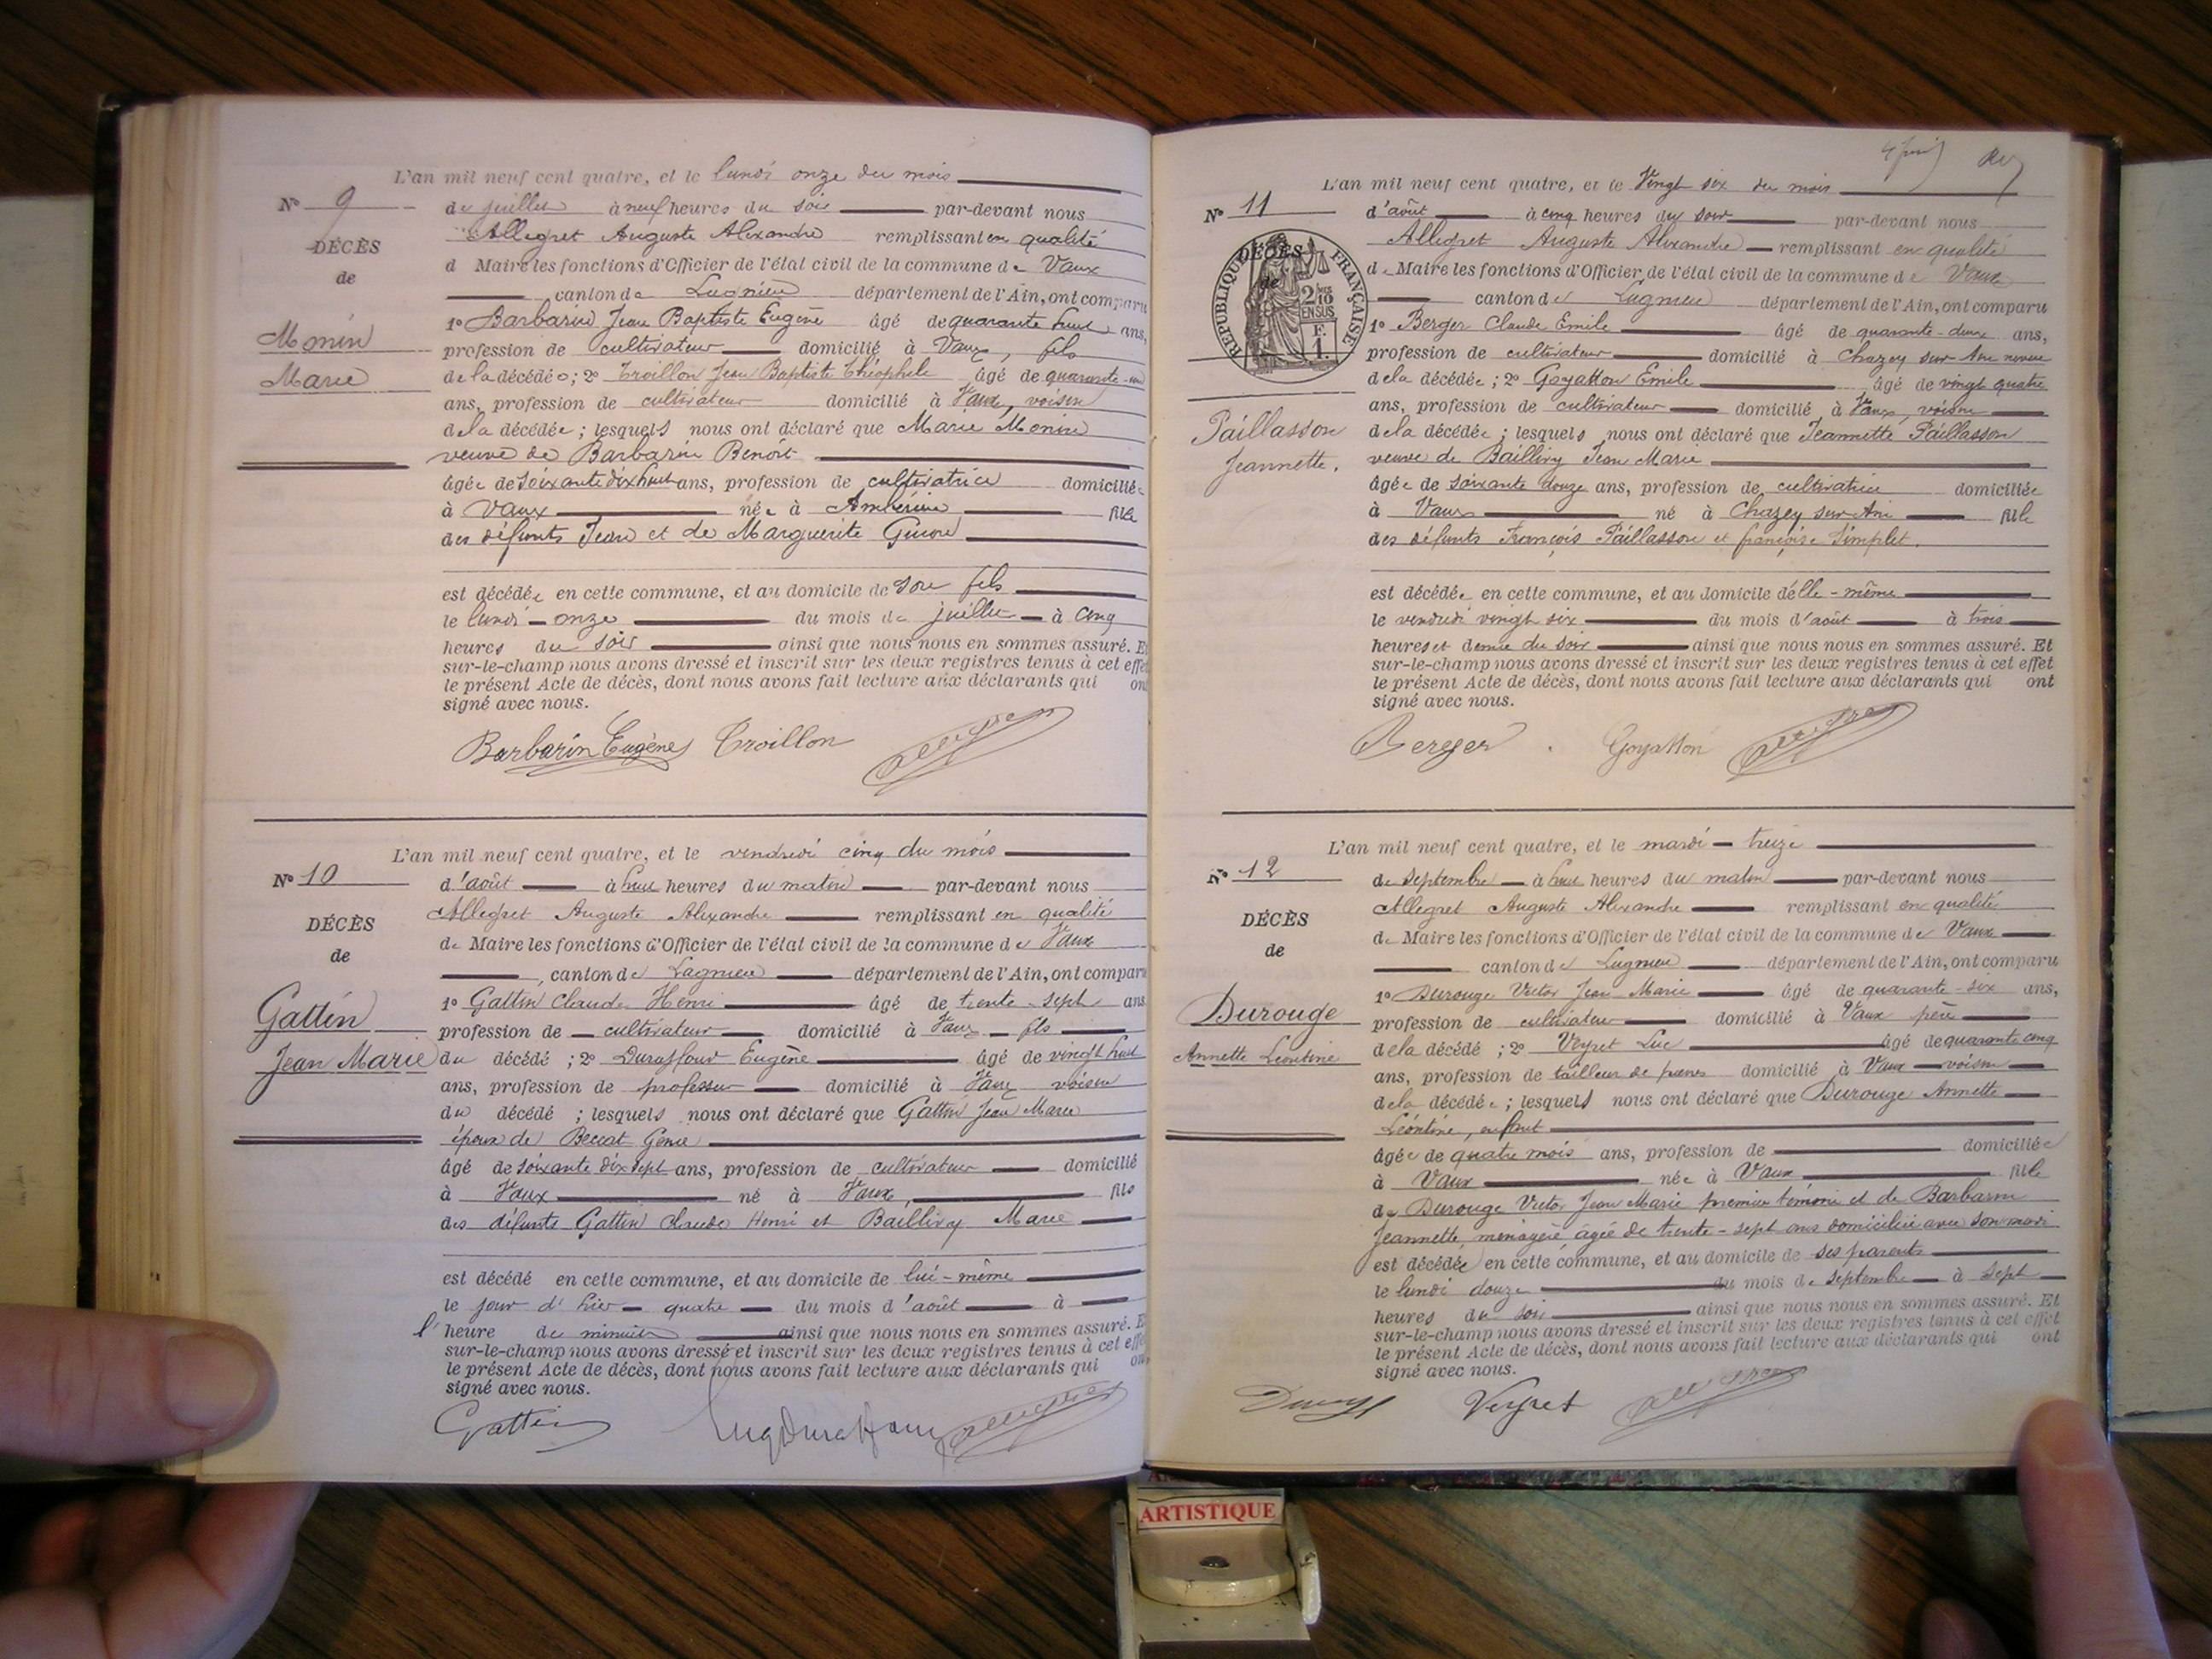 L'an mil neuf cent quatre, et le lundi onze du mois
N° 9
de juillet à neuf heures du soir par-devant nous
Allegret Auguste Alexandre remplissant en qualité
DÉCÈS
de
Monin
Marie
de Maire les fonctions d'Officier de l'état civil de la commune de Vaux
canton de Lagnieu département de l'Ain, ont comparu
1° Barbarin Jean Baptiste Eugène âgé de quarante huit ans,
profession de cultivateur domicilié à Vaux, fils
de la décédée; 2° Croillon Jean Baptiste Théophile âgé de quarante-un
ans, profession de cultivateur domicilié à Vaux, voisin
de la décédée; lesquels nous ont déclaré que Marie Monin
veuve de Barbarin Benoit
âgée de soixante dix huit ans, profession de cultivatrice domiciliée
à Vaux née à Ambérieu fille
des défunts Jean et de Marguerite
est décédée en cette commune, et au domicile de son fils
le lundi onze du mois de juillet à cinq
heures du soir ainsi que nous nous en sommes assuré. Et
sur-le-champ nous avons dressé et inscrit sur les deux registres tenus à cet effet
le présent Acte de décès, dont nous avons fait lecture aux déclarants qui ont
signé avec nous.
Barbarin Eugène Croillon
L'an mil neuf cent quatre, et le vendredi cinq du mois
N° 10
d'août à huit heures du matin par-devant nous
Allegret Auguste Alexandre remplissant en qualité
DÉCÈS
de
Gattin
Jean Marie
de Maire les fonctions d'Officier de l'état civil de la commune de Vaux
canton de Lagnieu département de l'Ain, ont comparu
1° Gattin Claude Henri âgé de trente-sept ans
profession de cultivateur domicilié à Vaux fils
du décédé; 2° Duraffour Eugène âgé de vingt huit
ans, profession de professeur domicilié à Vaux voisin
du décédé; lesquels nous ont déclaré que Gattin Jean Marie
époux de Beccat
âgé de soixante dix sept ans, profession de cultivateur domicilié
à Vaux né à Vaux, fils
des défunts Gattin Claude Henri et Baillivy Marie
est décédé en cette commune, et au domicile de lui-même
le jour d'hier quatre du mois d'août à
l'heure de minuit ainsi que nous nous en sommes assuré. Et
sur-le-champ nous avons dressé et inscrit sur les deux registres tenus à cet effet
le présent Acte de décès, dont nous avons fait lecture aux déclarants qui ont
signé avec nous.
Gattin
L'an mil neuf cent quatre, et le Vingt six du mois
N° 11
d'août à cinq heures du soir par-devant nous
Allegret Auguste Alexandre remplissant en qualité
DÉCÈS
de
RÉPUBLIQUE FRANÇAISE
2/10
EN SUS
F.
1.
Paillasson
Jeannette.
de Maire les fonctions d'Officier de l'état civil de la commune de Vaux
canton de Lagnieu département de l'Ain, ont comparu
1° Berger Claude Emile âgé de quarante-deux ans,
profession de cultivateur domicilié à Chazey sur Ain neveu
de la décédée; 2° Goyatton Emile âgé de vingt quatre
ans, profession de cultivateur domicilié à Vaux, voisin
de la décédée; lesquels nous ont déclaré que Jeannette Paillasson
veuve de Baillivy Jean Marie
âgée de soixante douze ans, profession de cultivatrice domiciliée
à Vaux né à Chazey sur Ain fille
des défunts François Paillasson et françoise Simplet.
est décédée en cette commune, et au domicile d'elle-même
le vendredi vingt six du mois d'août à trois
heures et demie du soir ainsi que nous nous en sommes assuré. Et
sur-le-champ nous avons dressé et inscrit sur les deux registres tenus à cet effet
le présent Acte de décès, dont nous avons fait lecture aux déclarants qui ont
signé avec nous.
Berger Goyatton
L'an mil neuf cent quatre, et le mardi treize
N° 12
de septembre à huit heures du matin par-devant nous
Allegret Auguste Alexandre remplissant en qualité
DÉCÈS
de
Durouge
Annette Léontine
de Maire les fonctions d'Officier de l'état civil de la commune de Vaux
canton de Lagnieu département de l'Ain, ont comparu
1° Durouge Victor Jean Marie âgé de quarante-six ans,
profession de cultivateur domicilié à Vaux père
de la décédé; 2° Veyret Luc âgé de quarante cinq
ans, profession de tailleur de pierres domicilié à Vaux voisin
de la décédée; lesquels nous ont déclaré que Durouge Annette
Léontine, enfant
âgée de quatre mois ans, profession de domiciliée
à Vaux née à Vaux fille
de Durouge Victor Jean Marie premier témoin et de Barbarin
Jeannette, ménagère âgée de trente-sept ans domiciliée avec son mari
est décédée en cette commune, et au domicile de ses parents
le lundi douze du mois de septembre à sept
heures du soir ainsi que nous nous en sommes assuré. Et
sur-le-champ nous avons dressé et inscrit sur les deux registres tenus à cet effet
le présent Acte de décès, dont nous avons fait lecture aux déclarants qui ont
signé avec nous.
Veyret
ARTISTIQUE